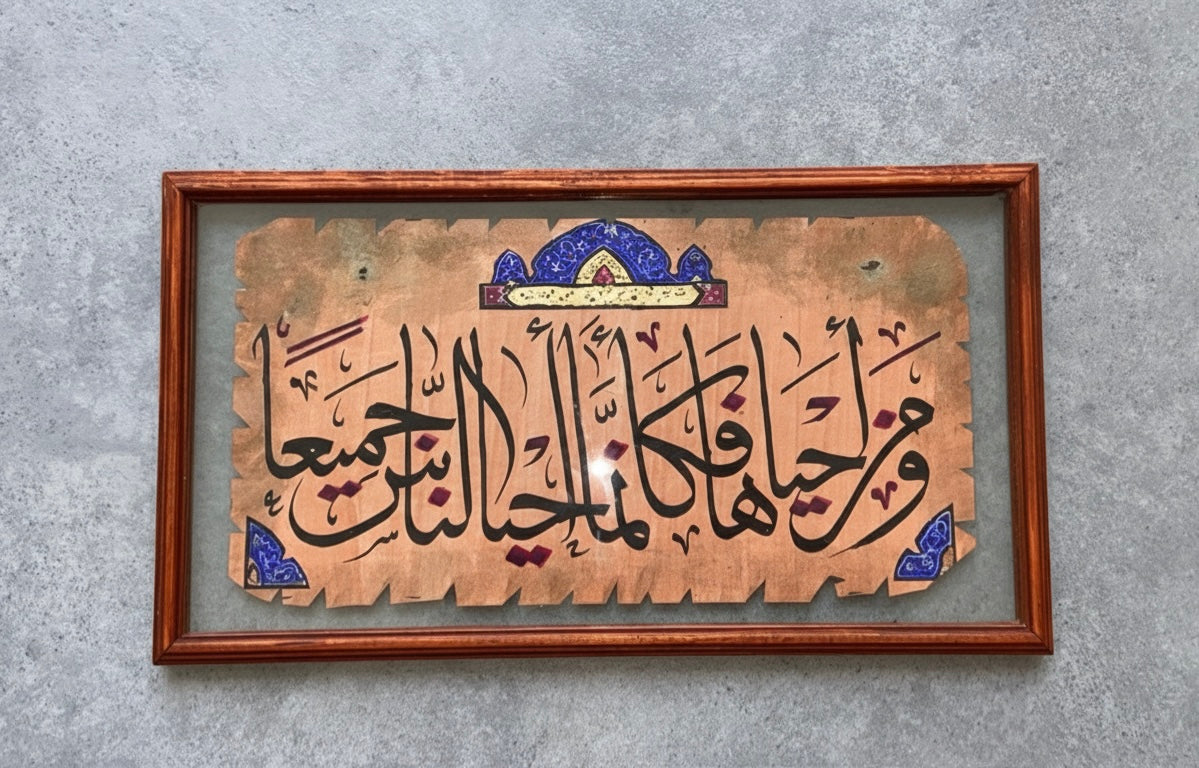 ومن أحياها فكأنما أحيا الناس جميعاً